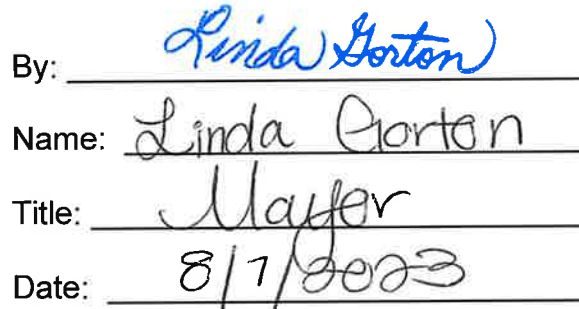 By: Linda Gorton
Name: Linda Gorton
Title: Mayor
Date: 8/7/2023